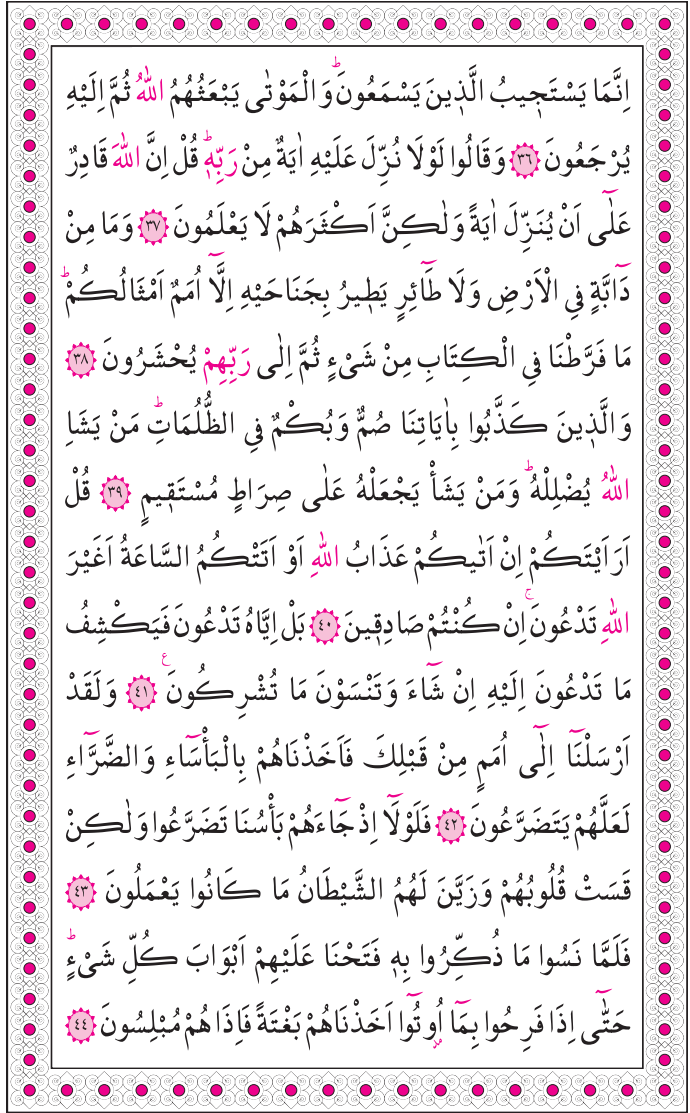 اِنَّمَا يَسْتَجٖيبُ الَّذٖينَ يَسْمَعُونَؕ وَالْمَوْتٰى يَبْعَثُهُمُ اللّٰهُ ثُمَّ اِلَيْهِ
يُرْجَعُونَ ﴿٣٦﴾ وَقَالُوا لَوْلَا نُزِّلَ عَلَيْهِ اٰيَةٌ مِنْ رَبِّهٖؕ قُلْ اِنَّ اللّٰهَ قَادِرٌ
عَلٰٓى اَنْ يُنَزِّلَ اٰيَةً وَلٰكِنَّ اَكْثَرَهُمْ لَا يَعْلَمُونَ ﴿٣٧﴾ وَمَا مِنْ
دَٓابَّةٍ فِى الْاَرْضِ وَلَا طَٓائِرٍ يَطٖيرُ بِجَنَاحَيْهِ اِلَّٓا اُمَمٌ اَمْثَالُكُمْؕ
مَا فَرَّطْنَا فِى الْكِتَابِ مِنْ شَیْءٍ ثُمَّ اِلٰى رَبِّهِمْ يُحْشَرُونَ ﴿٣٨﴾
وَالَّذٖينَ كَذَّبُوا بِاٰيَاتِنَا صُمٌّ وَبُكْمٌ فِى الظُّلُمَاتِؕ مَنْ يَشَاِ
اللّٰهُ يُضْلِلْهُؕ وَمَنْ يَشَاْ يَجْعَلْهُ عَلٰى صِرَاطٍ مُسْتَقٖيمٍ ﴿٣٩﴾ قُلْ
اَرَاَيْتَكُمْ اِنْ اَتٰيكُمْ عَذَابُ اللّٰهِ اَوْ اَتَتْكُمُ السَّاعَةُ اَغَيْرَ
اللّٰهِ تَدْعُونَۚ اِنْ كُنْتُمْ صَادِقٖينَ ﴿٤٠﴾ بَلْ اِيَّاهُ تَدْعُونَ فَيَكْشِفُ
مَا تَدْعُونَ اِلَيْهِ اِنْ شَٓاءَ وَتَنْسَوْنَ مَا تُشْرِكُونَ ع ﴿٤١﴾ وَلَقَدْ
اَرْسَلْنَٓا اِلٰٓى اُمَمٍ مِنْ قَبْلِكَ فَاَخَذْنَاهُمْ بِالْبَاْسَٓاءِ وَالضَّرَّٓاءِ
لَعَلَّهُمْ يَتَضَرَّعُونَ ﴿٤٢﴾ فَلَوْلَٓا اِذْ جَٓاءَهُمْ بَاْسُنَا تَضَرَّعُوا وَلٰكِنْ
قَسَتْ قُلُوبُهُمْ وَزَيَّنَ لَهُمُ الشَّيْطَانُ مَا كَانُوا يَعْمَلُونَ ﴿٤٣﴾
فَلَمَّا نَسُوا مَا ذُكِّرُوا بِهٖ فَتَحْنَا عَلَيْهِمْ اَبْوَابَ كُلِّ شَیْءٍؕ
حَتّٰٓى اِذَا فَرِحُوا بِمَٓا اُوتُٓوا اَخَذْنَاهُمْ بَغْتَةً فَاِذَا هُمْ مُبْلِسُونَ ﴿٤٤﴾